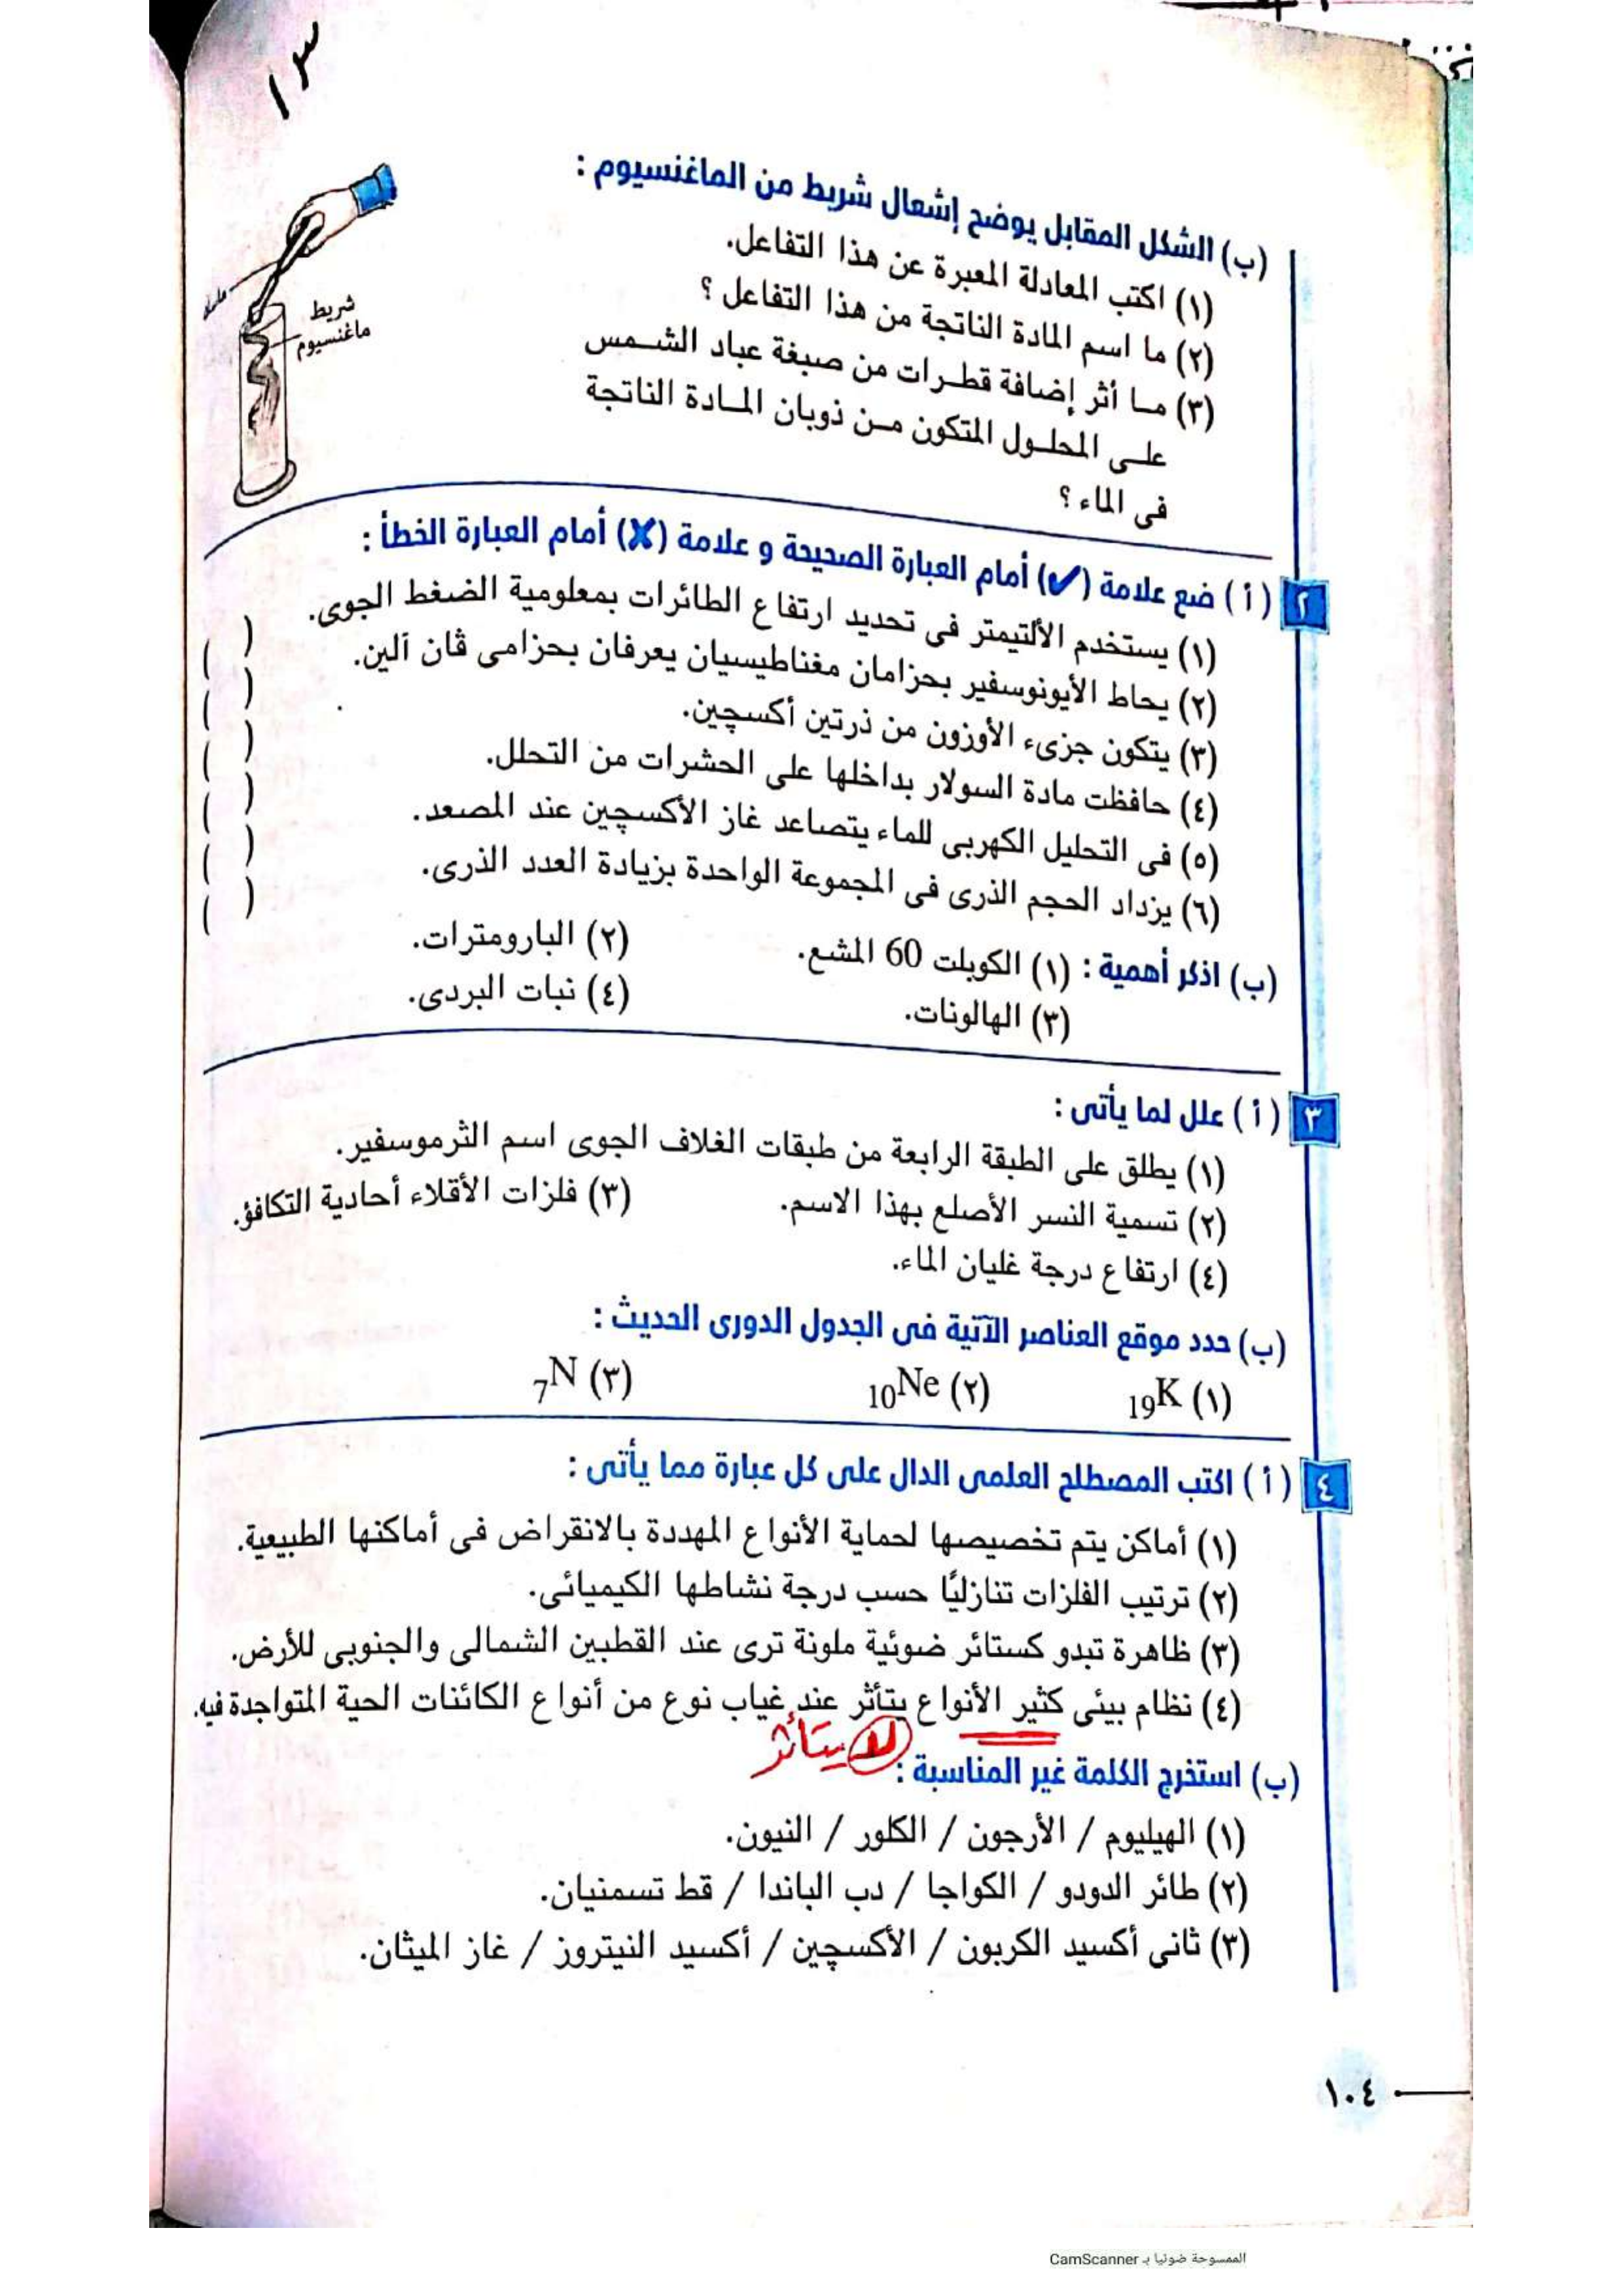 ١٣
(ب) الشكل المقابل يوضح إشعال شريط من الماغنسيوم :
(١) اكتب المعادلة المعبرة عن هذا التفاعل.
(٢) ما اسم المادة الناتجة من هذا التفاعل ؟
(٣) مـا أثر إضافة قطـرات من صبغة عباد الشـمس
علـى المحلـول المتكون مـن ذوبان المـادة الناتجة
فى الماء ؟
شريط
ماغنسيوم
٢ (أ) ضع علامة (✔) أمام العبارة الصحيحة و علامة (✘) أمام العبارة الخطأ :
(١) يستخدم الألتيمتر فى تحديد ارتفاع الطائرات بمعلومية الضغط الجوى. ( )
(٢) يحاط الأيونوسفير بحزامان مغناطيسيان يعرفان بحزامى ڤان آلين. ( )
(٣) يتكون جزىء الأوزون من ذرتين أكسچين. ( )
(٤) حافظت مادة السولار بداخلها على الحشرات من التحلل. ( )
(٥) فى التحليل الكهربى للماء يتصاعد غاز الأكسچين عند المصعد. ( )
(٦) يزداد الحجم الذرى فى المجموعة الواحدة بزيادة العدد الذرى. ( )
(ب) اذكر أهمية : (١) الكوبلت 60 المشع. (٢) البارومترات.
(٣) الهالونات. (٤) نبات البردى.
٣ (أ) علل لما يأتى :
(١) يطلق على الطبقة الرابعة من طبقات الغلاف الجوى اسم الثرموسفير.
(٢) تسمية النسر الأصلع بهذا الاسم. (٣) فلزات الأقلاء أحادية التكافؤ.
(٤) ارتفاع درجة غليان الماء.
(ب) حدد موقع العناصر الآتية فى الجدول الدورى الحديث :
(١) ₁₉K (٢) ₁₀Ne (٣) ₇N
٤ (أ) اكتب المصطلح العلمى الدال على كل عبارة مما يأتى :
(١) أماكن يتم تخصيصها لحماية الأنواع المهددة بالانقراض فى أماكنها الطبيعية.
(٢) ترتيب الفلزات تنازليًا حسب درجة نشاطها الكيميائى.
(٣) ظاهرة تبدو كستائر ضوئية ملونة ترى عند القطبين الشمالى والجنوبى للأرض.
(٤) نظام بيئى كثير الأنواع يتأثر عند غياب نوع من أنواع الكائنات الحية المتواجدة فيه.
لا يتأثر
(ب) استخرج الكلمة غير المناسبة :
(١) الهيليوم / الأرجون / الكلور / النيون.
(٢) طائر الدودو / الكواجا / دب الباندا / قط تسمنيان.
(٣) ثانى أكسيد الكربون / الأكسچين / أكسيد النيتروز / غاز الميثان.
١٠٤
الممسوحة ضوئيا بـ CamScanner